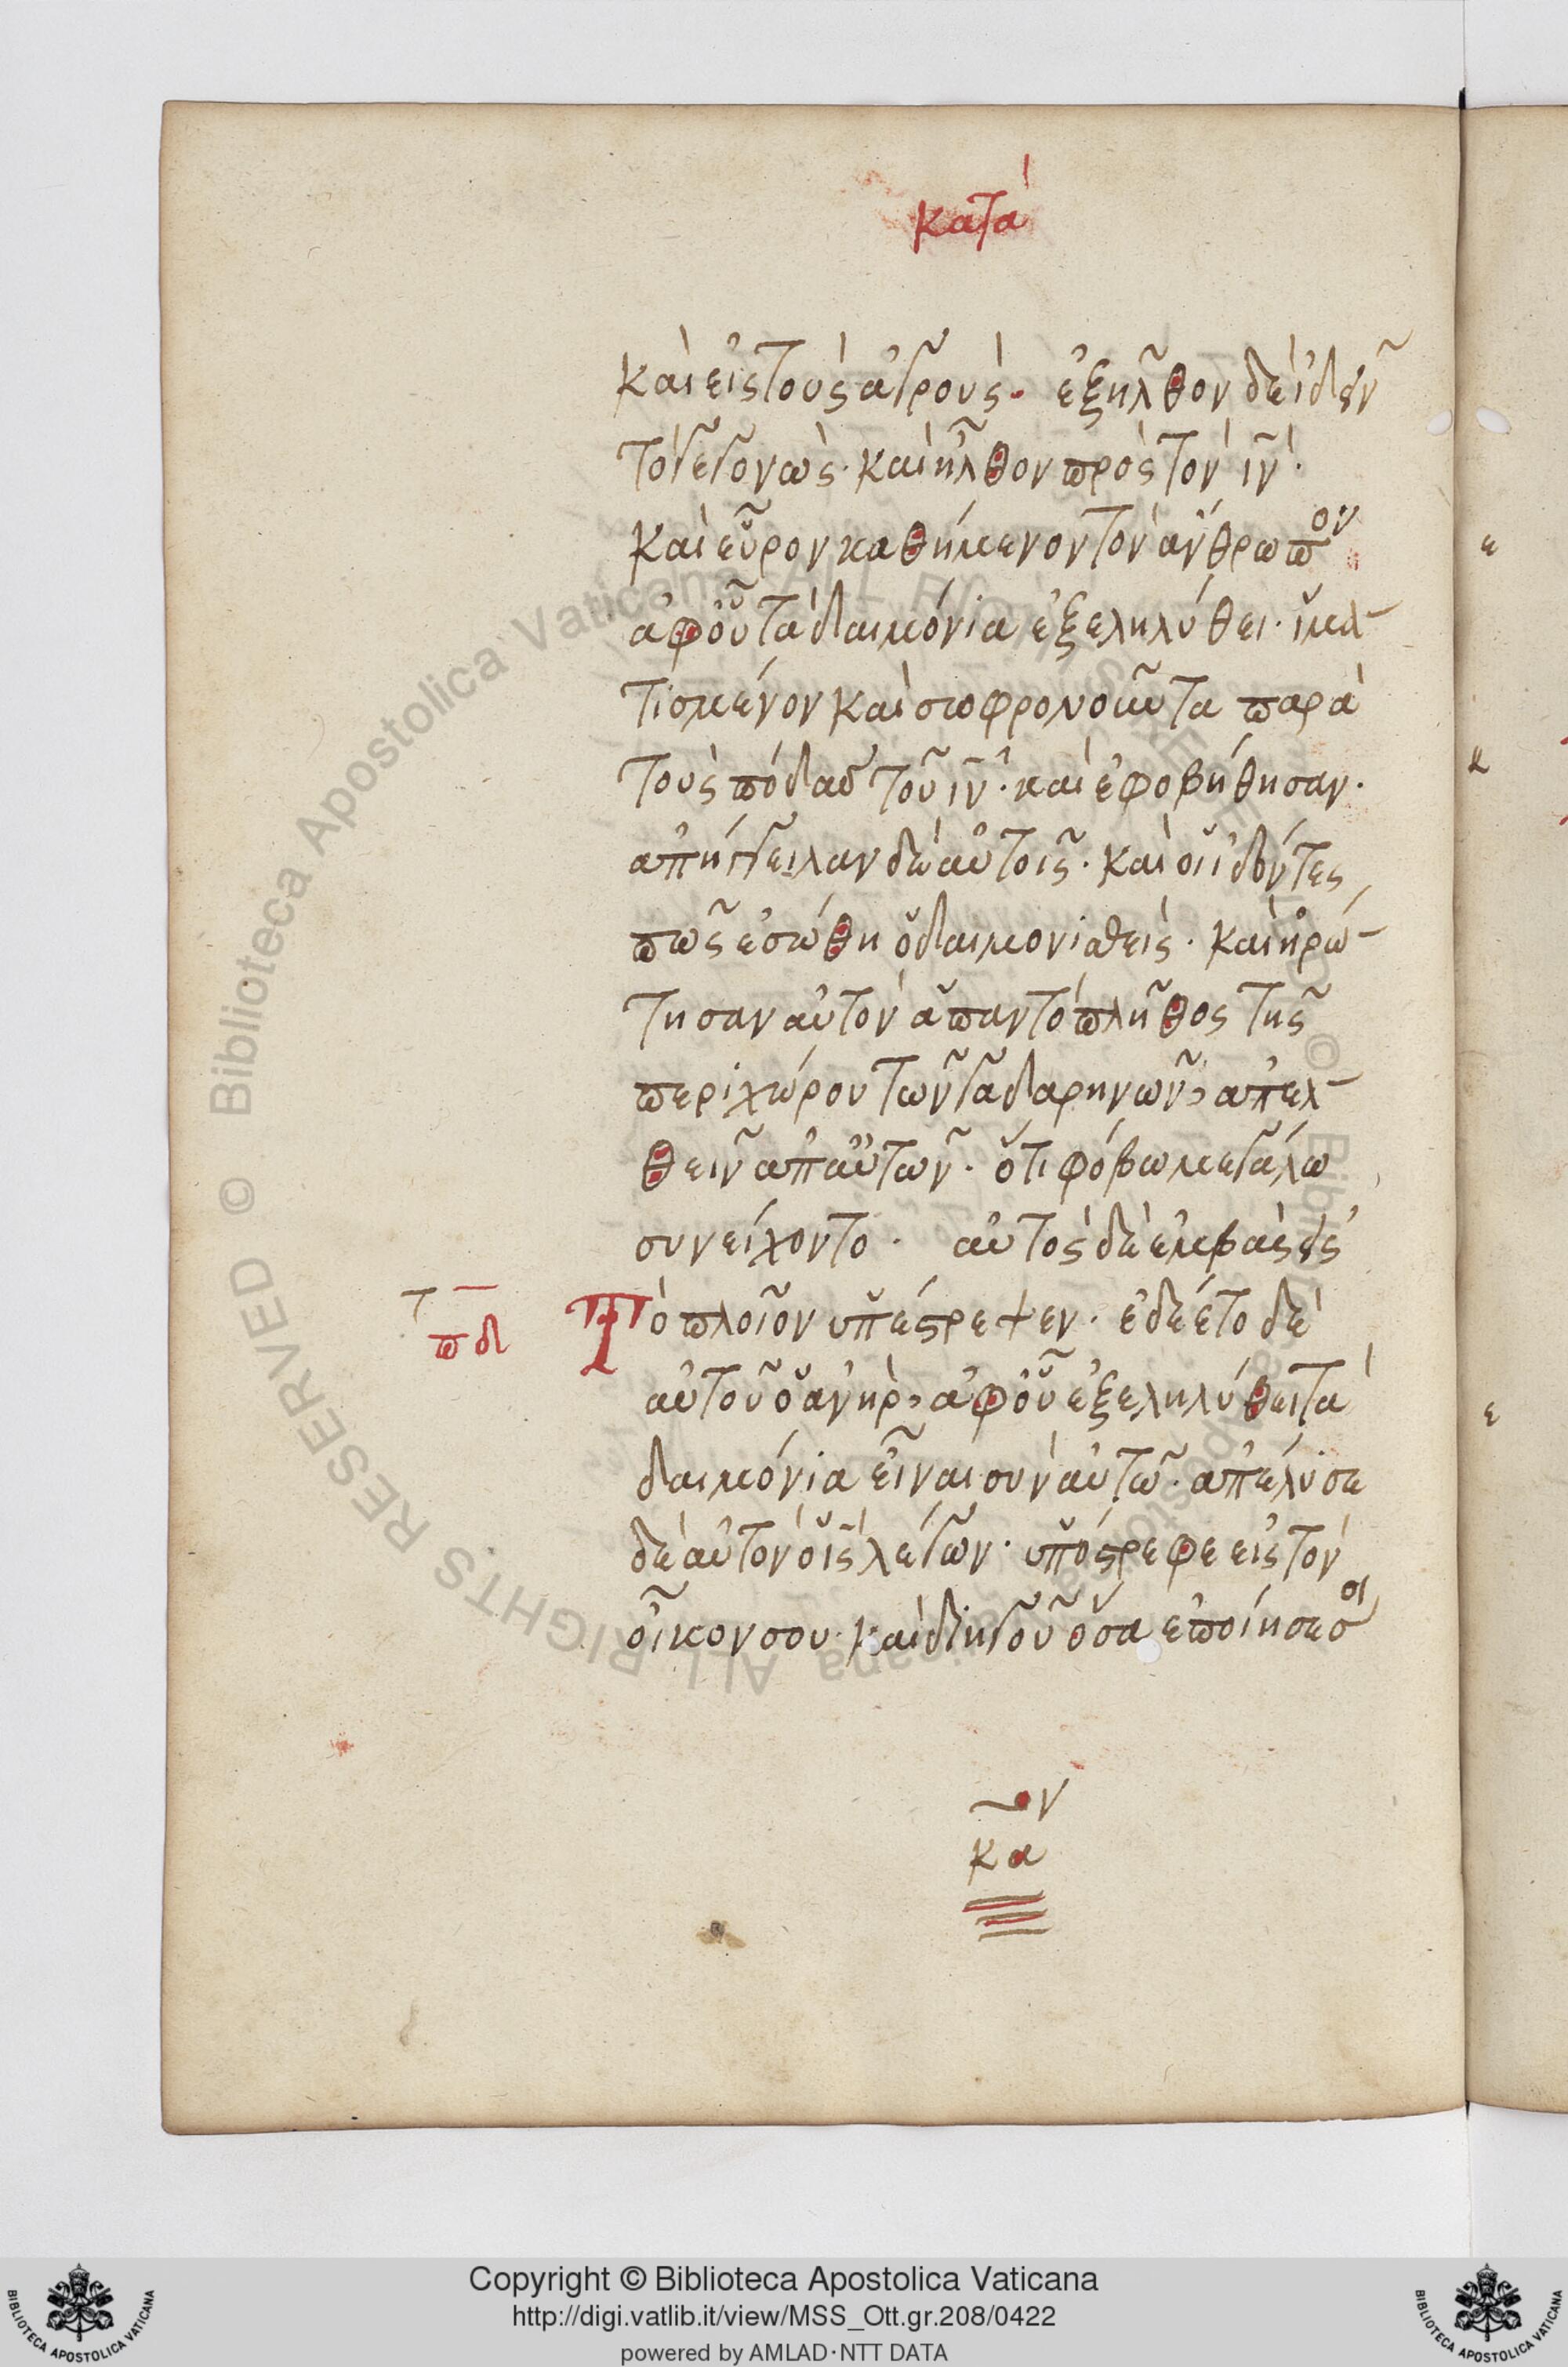 κατά
καὶ εἰς τοὺς ἀγρούς. ἐξῆλθον δὲ ἰδεῖν
τὸ γεγονώς· καὶ ἦλθον πρὸς τὸν ιν·
καὶ εὗρον καθήμενον τὸν ἄνθρωπον
ἀφ οὗ τὰ δαιμόνια ἐξεληλύθει· ἱμα-
τισμένον καὶ σωφρονοῦντα παρὰ
τοὺς πόδας τοῦ ιυ· καὶ ἐφοβήθησαν·
ἀπήγγειλαν δὲ αὐτοῖς· καὶ οἱ ἰδόντες
πῶς ἐσώθη ὁ δαιμονιαθεὶς· καὶ ἠρώ-
τησαν αὐτὸν ἅπαν τὸ πλῆθος τῆς
περιχώρου τῶν γαδαρηνῶν, ἀπελ-
θεῖν ἀπ αὐτῶν· ὅτι φόβω μεγάλω
συνείχοντο· αὐτὸς δὲ ἐμβὰς εἰς
Τὸ πλοῖον ὑπέστρεψεν· ἐδέετο δὲ
τ πδ
αὐτοῦ ὁ ἀνὴρ, ἀφ οὗ ἐξεληλύθει τὰ
δαιμόνια εἶναι σὺν αὐτῶ· ἀπέλυσε
δὲ αὐτὸν ὁ ις λέγων· ὑπόστρεφε εἰς τὸν
οἶκον σου· καὶ διηγοῦ ὅσα ἐποίησε σοι
κα
ε
κ
ε
Copyright © Biblioteca Apostolica Vaticana
http://digi.vatlib.it/view/MSS_Ott.gr.208/0422
powered by AMLAD·NTT DATA
BIBLIOTECA APOSTOLICA VATICANA
BIBLIOTECA APOSTOLICA VATICANA
Biblioteca Apostolica Vaticana ALL RIGHTS RESERVED © Biblioteca Apostolica Vaticana ALL RIGHTS RESERVED ©